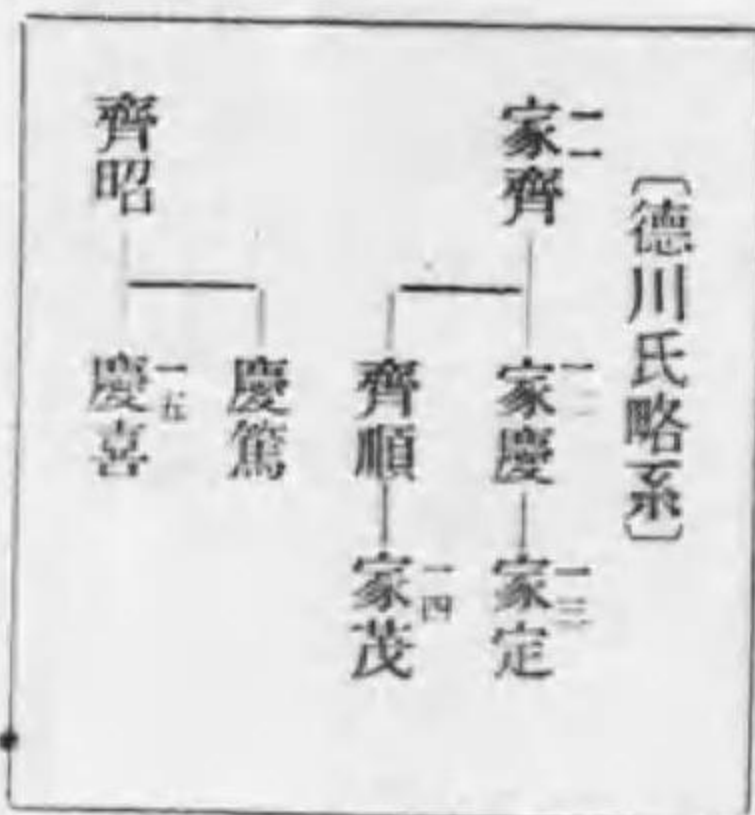 〔德川氏略系〕
一一
家齊
一二
家慶
一三
家定
齊順
一四
家茂
齊昭
慶篤
一五
慶喜